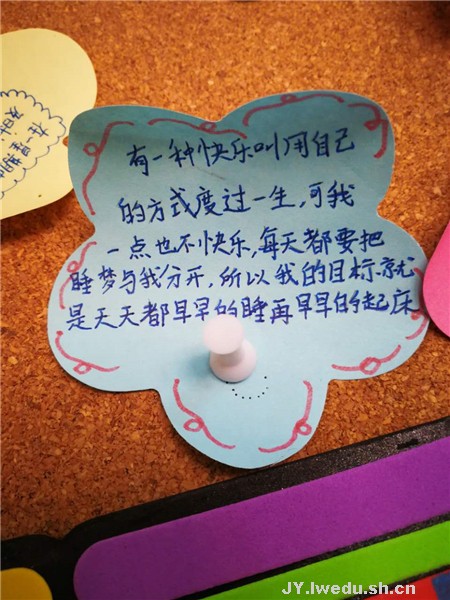 有一种快乐叫用自己
的方式度过一生,可我
一点也不快乐,每天都要把
睡梦与我分开,所以我的目标就
是天天都早早的睡再早早的起床
在一星期
JY.lwedu.sh.cn